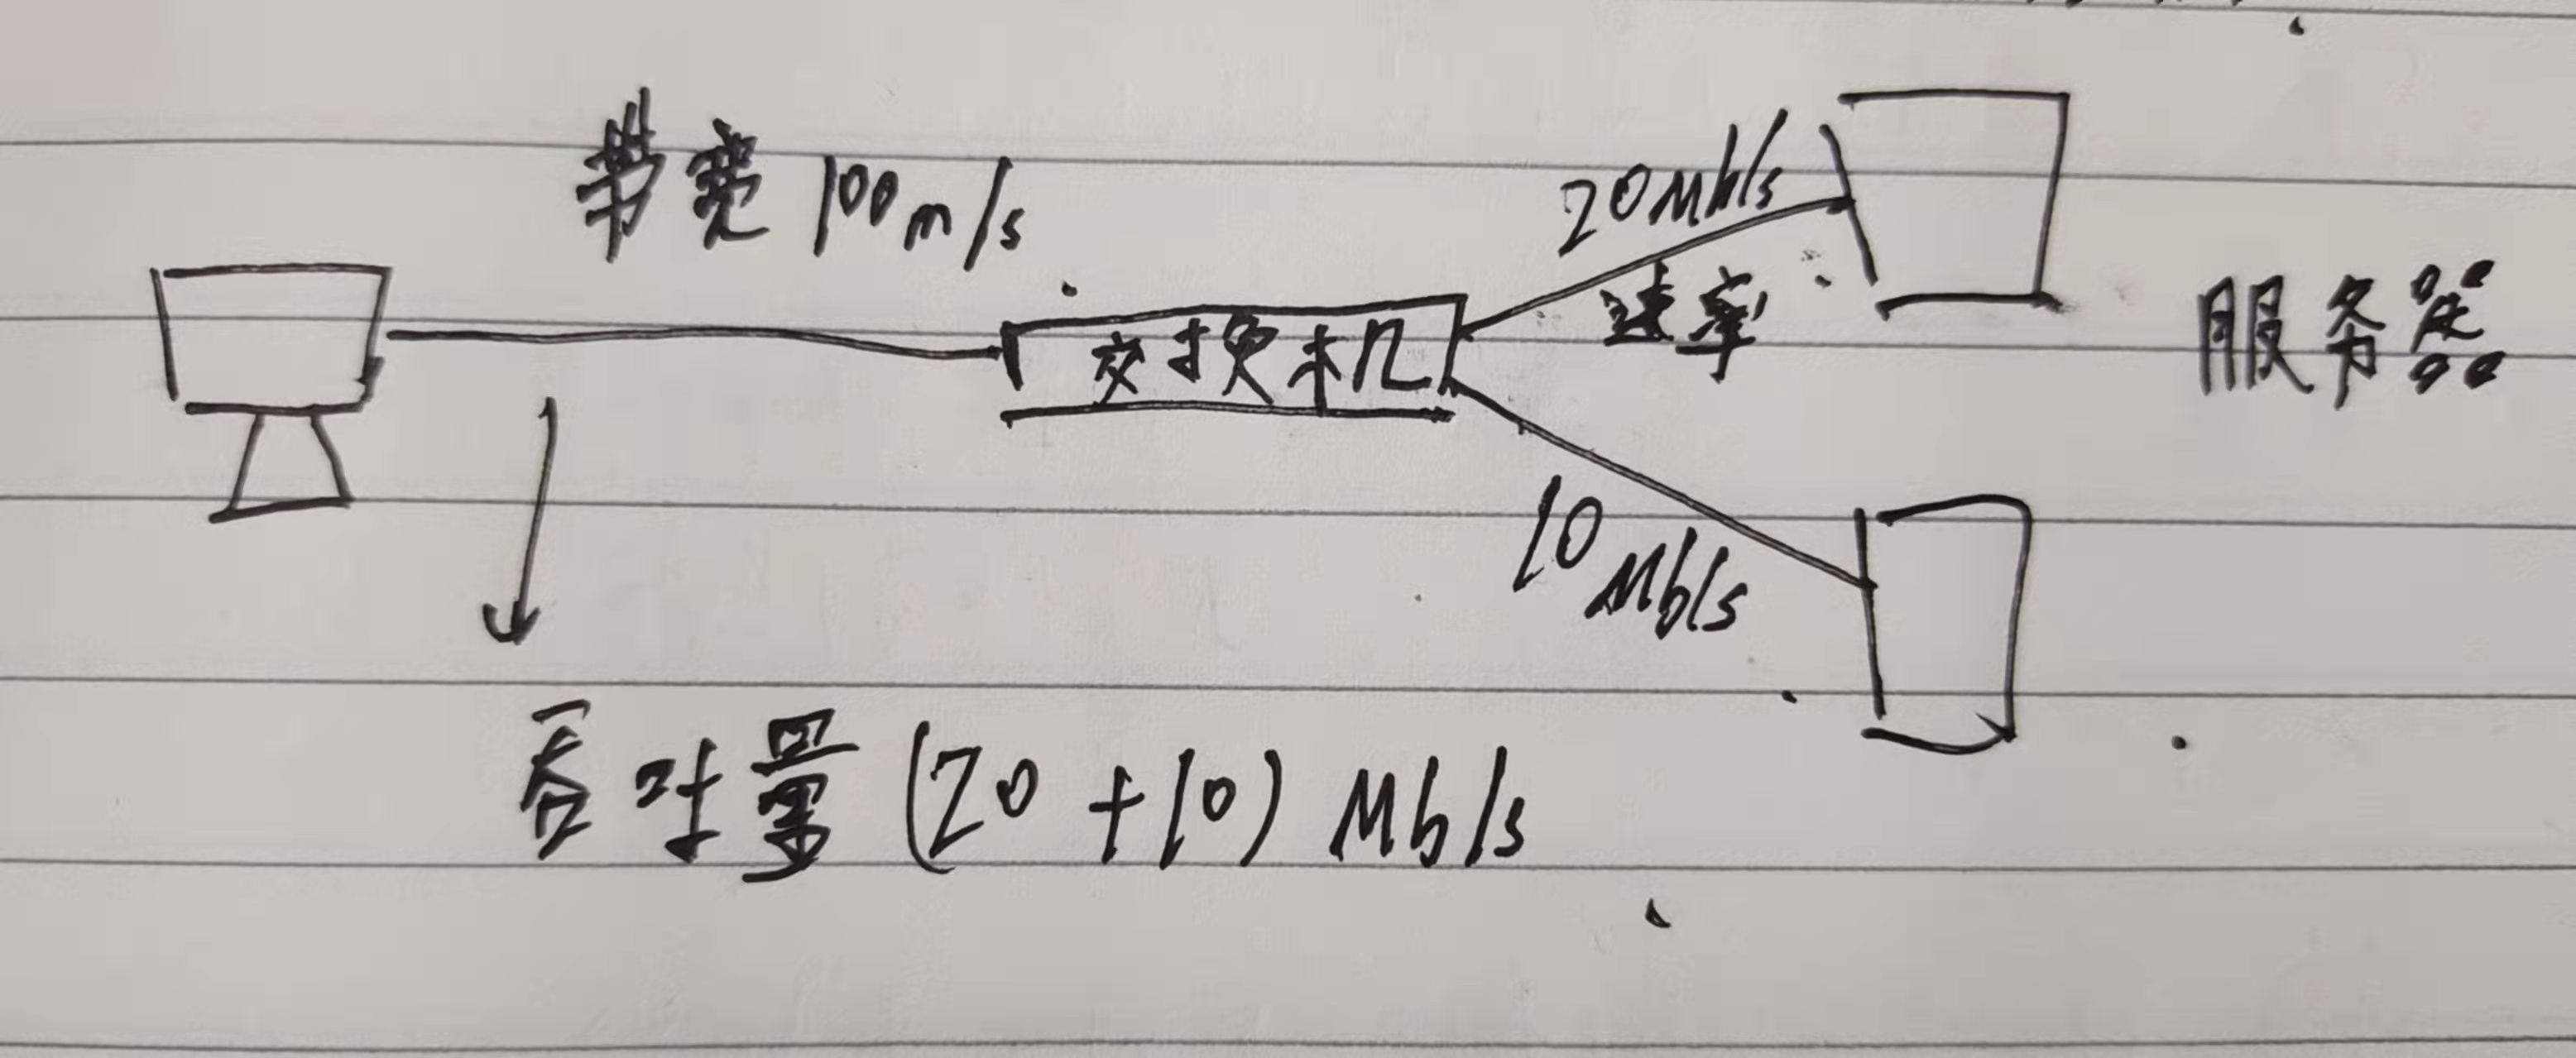 带宽 100m/s
20Mb/s
速率
交换机
服务器
10Mb/s
吞吐量 (20+10) Mb/s